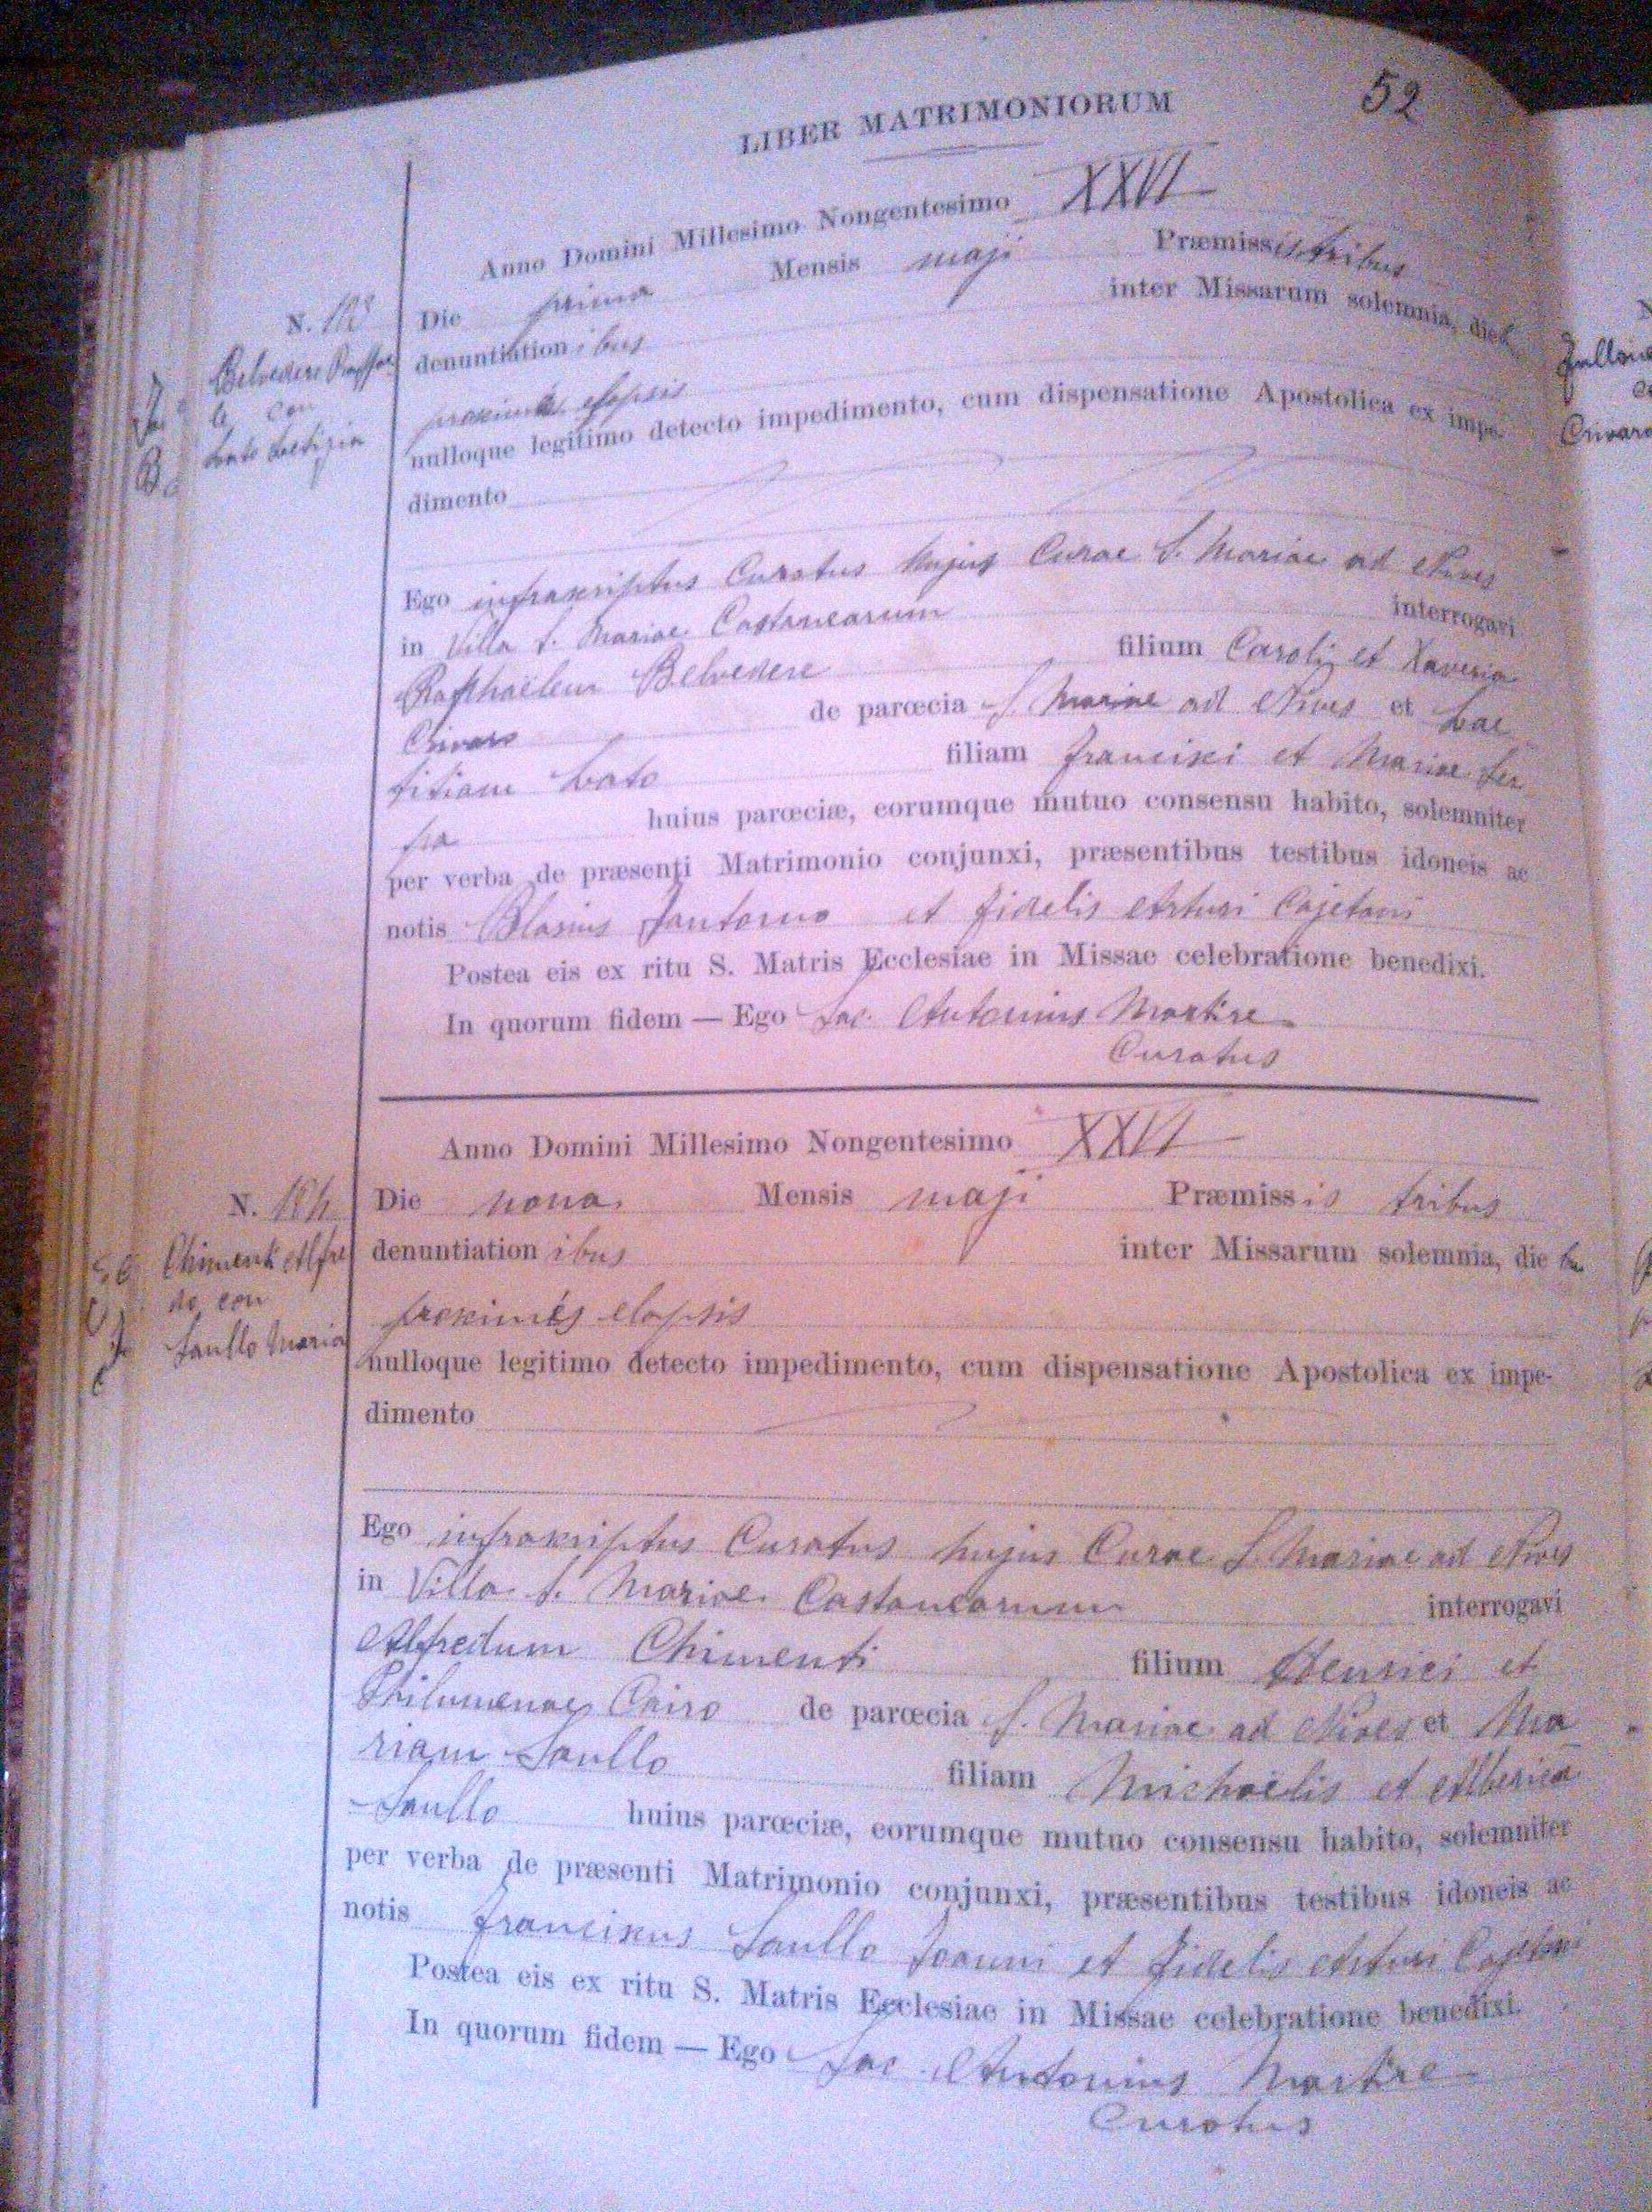 52
LIBER MATRIMONIORUM
Anno Domini Millesimo Nongentesimo XXVI
Die prima Mensis maji Præmissis tribus
N.
denuntiationibus inter Missarum solemnia, die
Belvedere Raffae
le con
proximis elapsis
nulloque legitimo detecto impedimento, cum dispensatione Apostolica ex impe-
dimento
Ego infrascriptus Curatus hujus Curae S. Mariae ad Nives
in Villa S. Mariae Castanearum interrogavi
Raphaelem Belvedere filium Caroli et Xaveria
Crivaro de parœcia S. Mariae ad Nives et Lae
titiam Lato filiam Francisci et Mariae
huius parœciæ, eorumque mutuo consensu habito, solemniter
per verba de præsenti Matrimonio conjunxi, præsentibus testibus idoneis ac
notis Blasius Santoro et Fidelis Arturi Cajetani
Postea eis ex ritu S. Matris Ecclesiae in Missae celebratione benedixi.
In quorum fidem — Ego Sac. Antonius Martire
Curatus
Anno Domini Millesimo Nongentesimo XXVI
N.
Die nona Mensis maji Præmissis tribus
denuntiationibus inter Missarum solemnia, die
Chimenti Alfre
do con
Saullo Maria
proximis elapsis
nulloque legitimo detecto impedimento, cum dispensatione Apostolica ex impe-
dimento
Ego infrascriptus Curatus hujus Curae S. Mariae ad Nives
in Villa S. Mariae Castanearum interrogavi
Alfredum Chimenti filium Henrici et
Philumenae Cairo de parœcia S. Mariae ad Nives et Ma
riam Saullo filiam Michaelis et Alberica
Saullo huius parœciæ, eorumque mutuo consensu habito, solemniter
per verba de præsenti Matrimonio conjunxi, præsentibus testibus idoneis ac
notis Franciscus Saullo Joanni et Fidelis Arturi Cajetani
Postea eis ex ritu S. Matris Ecclesiae in Missae celebratione benedixi.
In quorum fidem — Ego Sac. Antonius Martire
Curatus